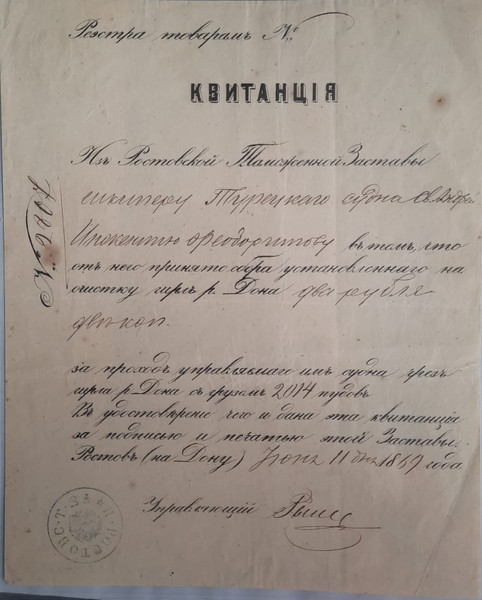 Реэстра товарамъ №
КВИТАНЦІЯ
Изъ Ростовской Таможенной Заставы
шкиперу Турецкаго судна Св. Андрей
въ томъ, что
отъ него принято сбора установленнаго на
очистку гирлъ р. Дона два рубля
двѣ коп.
за проходъ управляемаго имъ судна чрезъ
гирла р. Дона съ грузомъ 2014 пудовъ
Въ удостовѣреніе чего и дана эта квитанція
за подписью и печатью этой Заставы.
Ростовъ (на Дону) 11 дня 1869 года
Управляющій